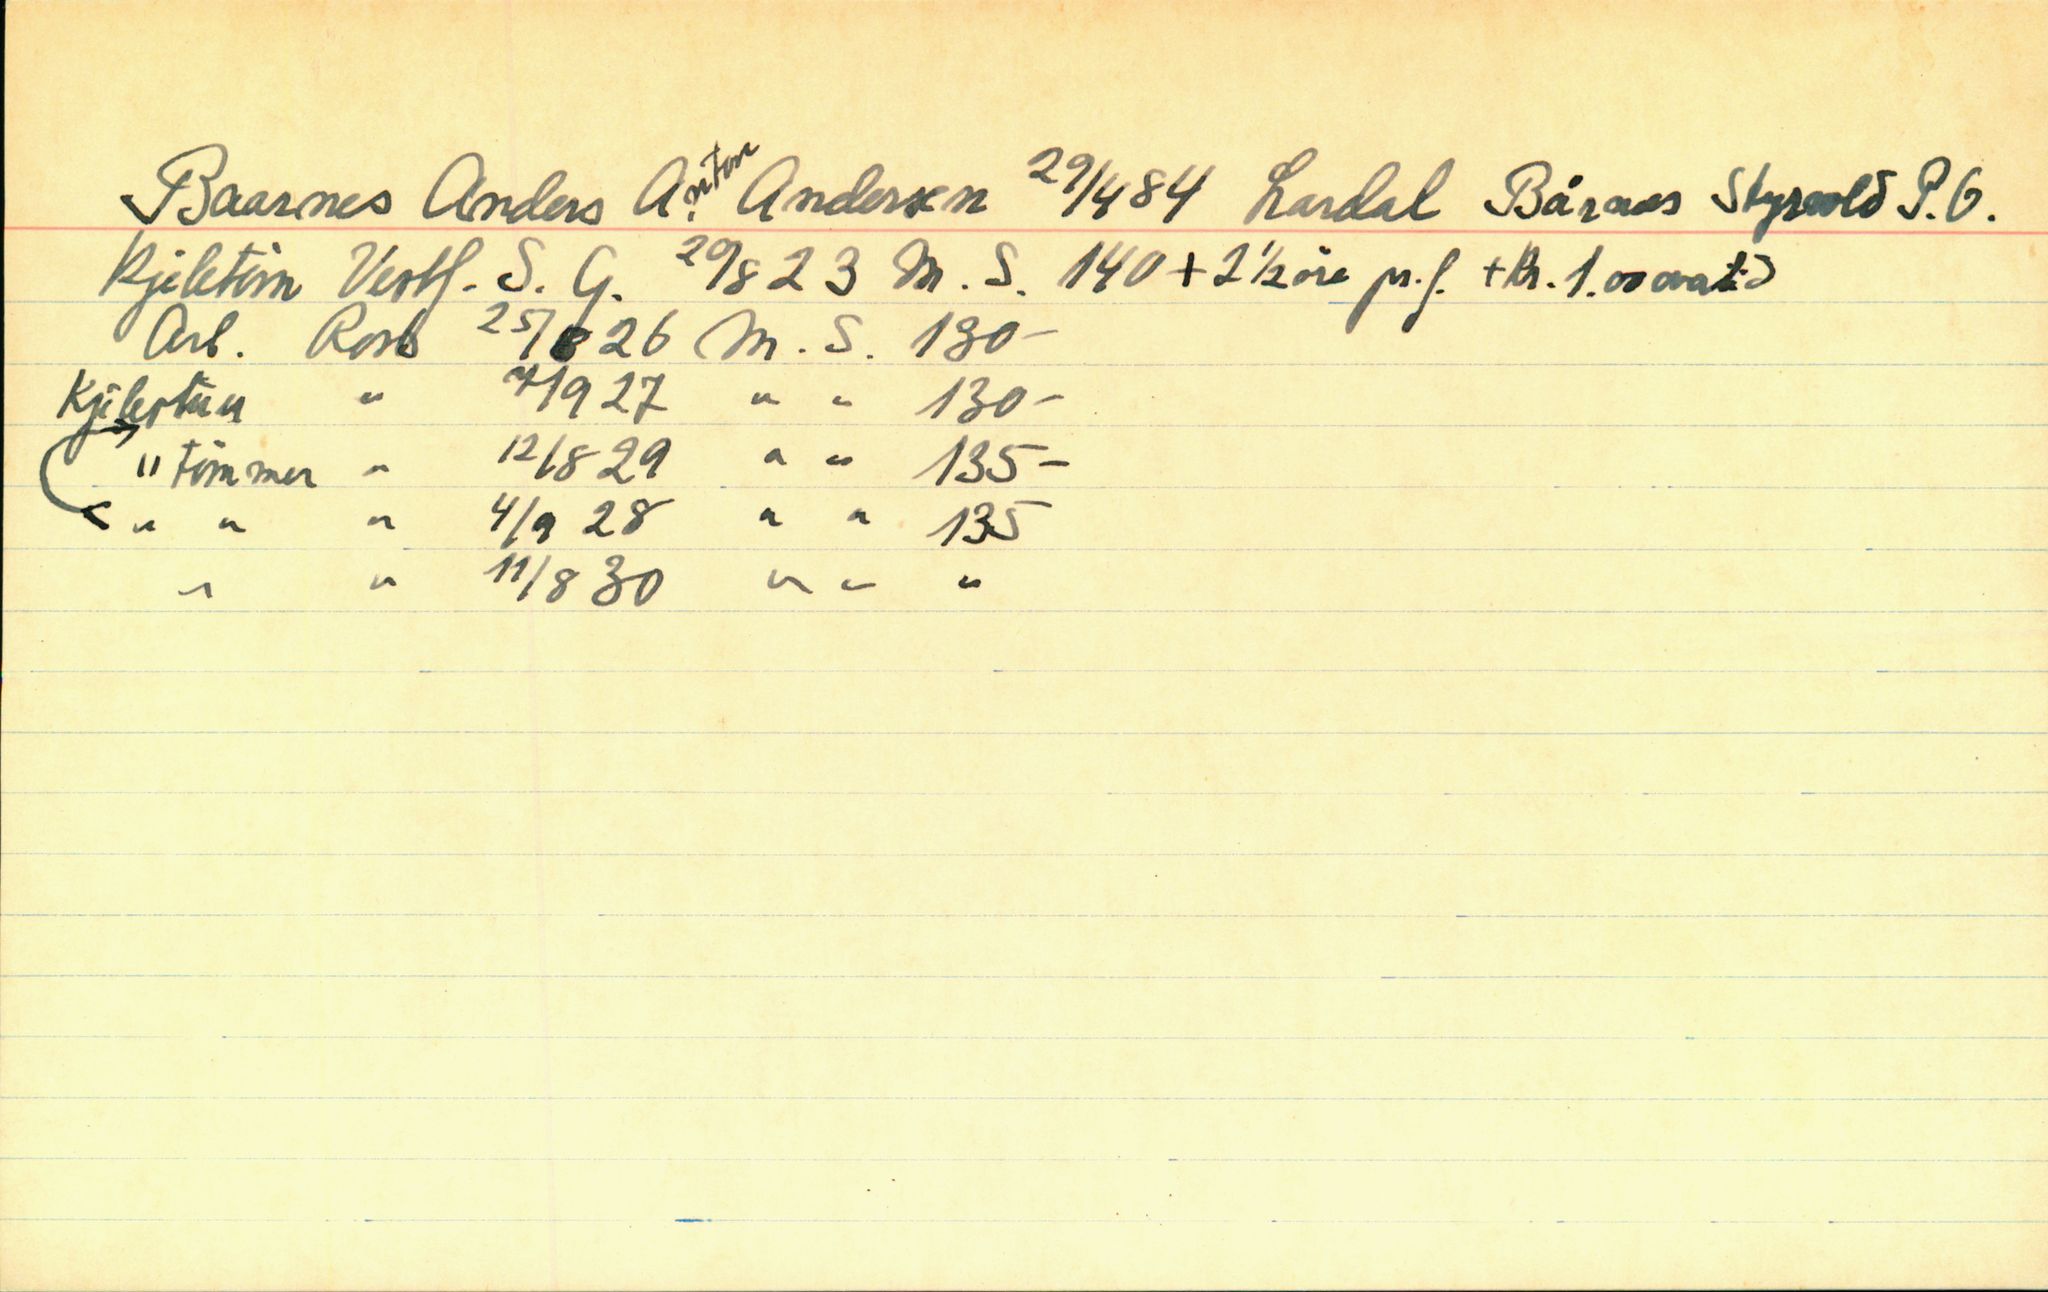 Baarnes Anders Anton Andersen 29/4 84 Lardal Bårnes Styrvold P.O.
Kjeletöm Vestf. S. G. 29/8 23 M. S. 140 + 2 ½ öre pr. f. + Kr. 1.00 ovatid
Arb. Rosb 25/8 26 M. S. 130 -
Kjelestuu " 7/9 27 " " 130 -
" tömmer " 12/8 29 " " 135 -
" " " 4/9 28 " " 135
" " 11/8 30 " " "